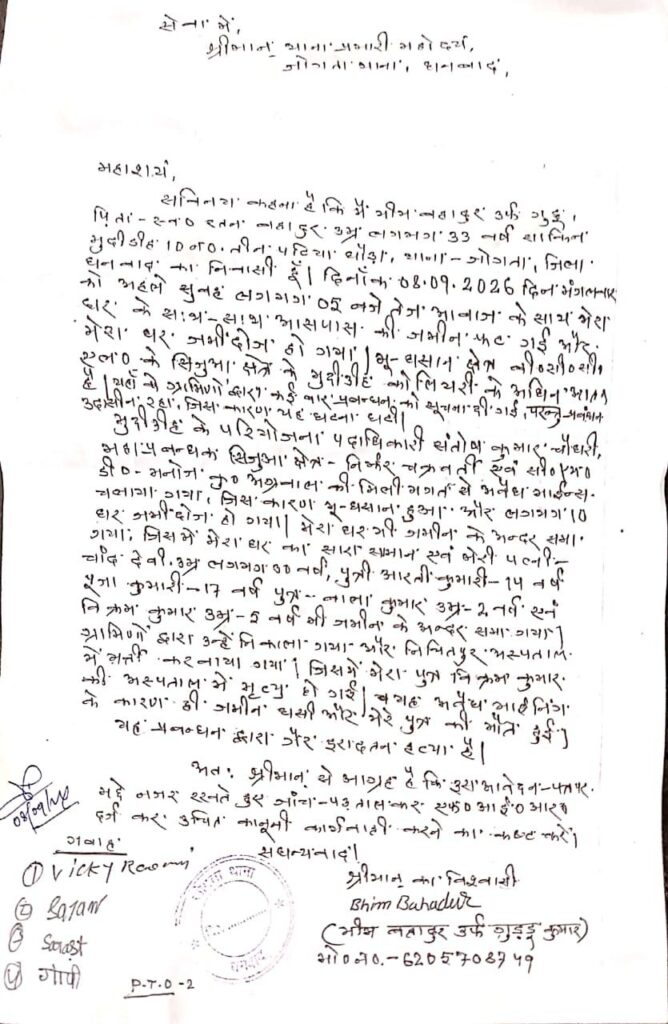 सेवा में,
श्रीमान् थाना प्रभारी महोदय,
जोगता थाना, धनबाद,
महाशय,
सविनय कहना है कि मैं भीम बहादुर उर्फ गुड्डू,
पिता - स्व० रतन बहादुर उम्र लगभग 33 वर्ष साकिन
मुदीडीह 10 न०. तीन पटिया धौड़ा, थाना - जोगता, जिला
धनबाद का निवासी हूँ। दिनाँक 08.09.2026 दिन मंगलवार
को अहले सुबह लगभग 05 बजे तेज आवाज के साथ मेरा
घर के साथ-साथ आसपास की जमीन फट गई और
मेरा घर जमींदोज हो गया। भू-धसान क्षेत्र बी०सी०सी०
एल० के सिजुआ क्षेत्र के मुदीडीह कोलियरी के अधिन आता
है। यहाँ के ग्रामिणों द्वारा कई बार प्रबन्धन को सूचना दी गई, परन्तु प्रबंधन
उदासीन रहा, जिस कारण यह घटना घटी।
मुदीडीह के परियोजना पदाधिकारी संतोष कुमार चौधरी,
महाप्रबन्धक सिजुआ क्षेत्र - निर्झर चक्रवर्ती एवं सी०एम०
डी० - मनोज कु० अग्रवाल की मिली भगत से अवैध माईन्स
चलाया गया, जिस कारण भू-धसान हुआ। और लगभग 10
घर जमींदोज हो गया। मेरा घर भी जमीन के अन्दर समा
गया, जिसमें मेरा घर का सारा सामान एवं मेरी पत्नी -
चाँद देवी. उम्र लगभग 30 वर्ष, पुत्री आरती कुमारी - 14 वर्ष
पूजा कुमारी - 17 वर्ष पुत्र - बाला कुमार उम्र - 2 वर्ष एवं
विक्रम कुमार उम्र - 5 वर्ष भी जमीन के अन्दर समा गया।
ग्रामिणों द्वारा उन्हें निकाला गया और निचितपुर अस्पताल
में भर्ती करवाया गया। जिसमें मेरा पुत्र विक्रम कुमार
की अस्पताल में मृत्यु हो गई। वगह अवैध माईनिंग
के कारण ही जमीन धसी और मेरे पुत्र की मौत हुई।
यह प्रबन्धन द्वारा गैर इरादतन हत्या है।
अतः श्रीमान् से आग्रह है कि इस आवेदन-पत्र पर
मद्दे नजर रखते हुए जाँच-पड़ताल कर एफ०आई०आर०
दर्ज कर उचित कानूनी कार्यवाही करने का कष्ट करें।
सधन्यवाद।
गवाह
① Vicky
③
④ गोपी
श्रीमान् का विश्वासी
Bhim Bahadur
(भीम बहादुर उर्फ गुड्डू कुमार)
मो०न०.-6205708749
थाना
धनबाद
P.T.O-2